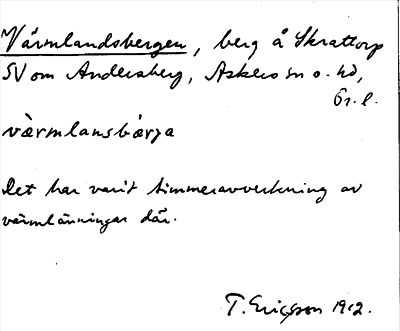 Värmlandsbergen, berg å Skrattorp
SV om Andersberg, Askers sn o. hd,
Ör. l.
värmlansbärja
Det har varit timmeravverkning av
värmlänningar där.
T. Ericsson 1912.